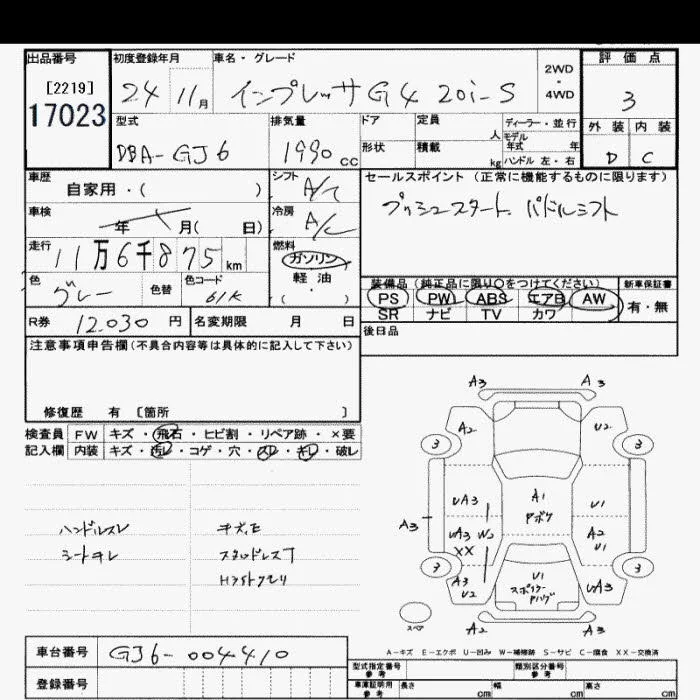 出品番号
[2219]
17023
初度登録年月
24 11月
車名・グレード
インプレッサG4 20i-S
2WD
・
4WD
評価点
3
外装 内装
D C
型式
DBA-GJ6
排気量
1990 cc
ドア
形状
定員 人
積載 kg
ディーラー・並行
モデル
年式 年
ハンドル 左・右
車歴
自家用・( )
シフト
A/T
セールスポイント (正常に機能するものに限ります)
プッシュスタート、パドルシフト
車検
年 月( 日)
冷房
A/C
走行
11万6千875km
燃料
ガソリン
・
軽油
( )
色
グレー
色替
色コード
61K
装備品 (純正品に限り○をつけてください)
PS PW ABS エアB AW
SR ナビ TV カワ
新車保証書
有・無
R券 12,030円
名変期限 月 日
後日品
注意事項申告欄(不具合内容等は具体的に記入して下さい)
修復歴 有 [箇所 ]
検査員 FW キズ・飛石・ヒビ割・リペア跡・×要
記入欄 内装 キズ・汚レ・コゲ・穴・スレ・キレ・破レ
ハンドルスレ
シートキレ
スタッドレスT
A3 A3
A2 U2
3 3
UA3 A1 U1
アボケ
A3 UA3 W2 A2
XX U1
3 3
A3 U1 UA3
U2 スポイラー
A2 A3
スペア
A-キズ E-エクボ U-凹み W-補修跡 S-サビ C-腐食 XX-交換済
車台番号 GJ6-004410
登録番号
型式指定番号
参考
類別区分番号
参考
車庫証明用
参考
長さ cm 幅 cm 高さ cm